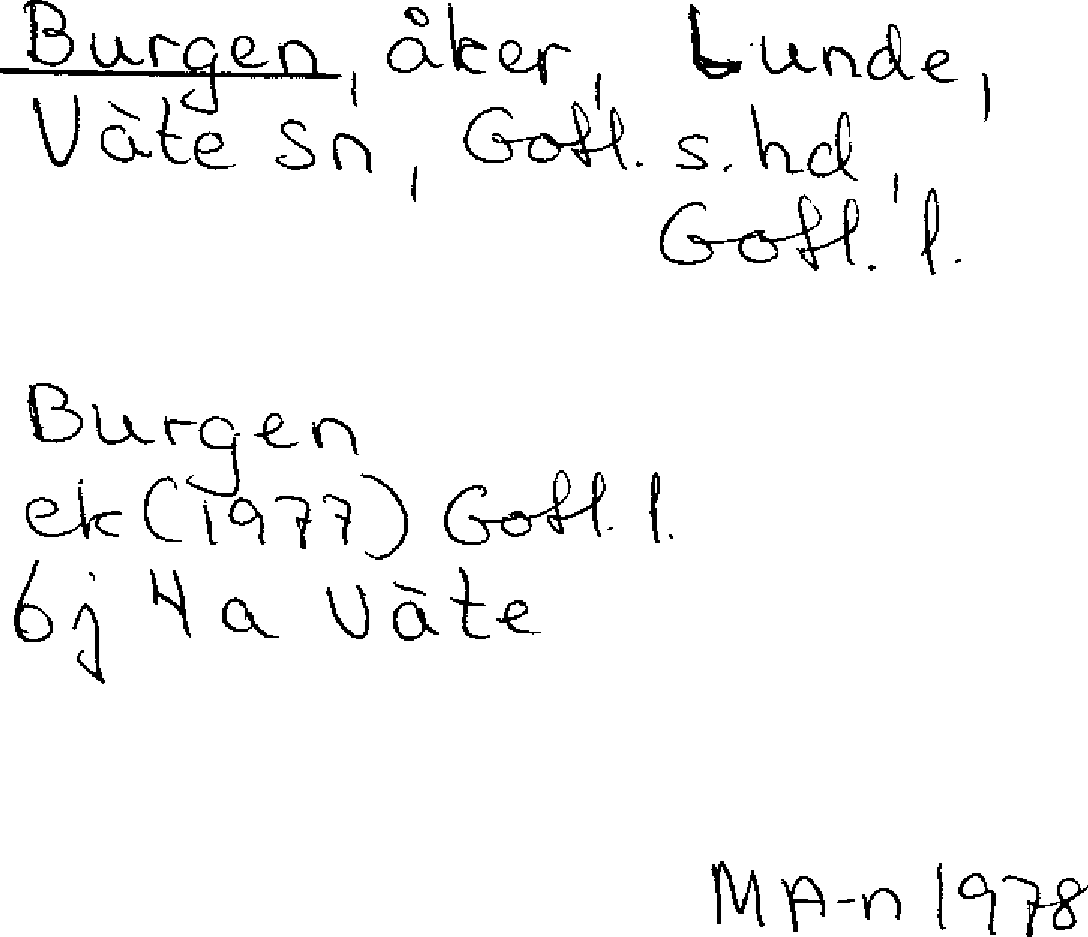 Burgen, åker, Lunde,
Väte sn, Gotl. s. hd,
Gotl. l.
Burgen
ek (1977) Gotl. l.
6j 4a Väte
MA-n 1978